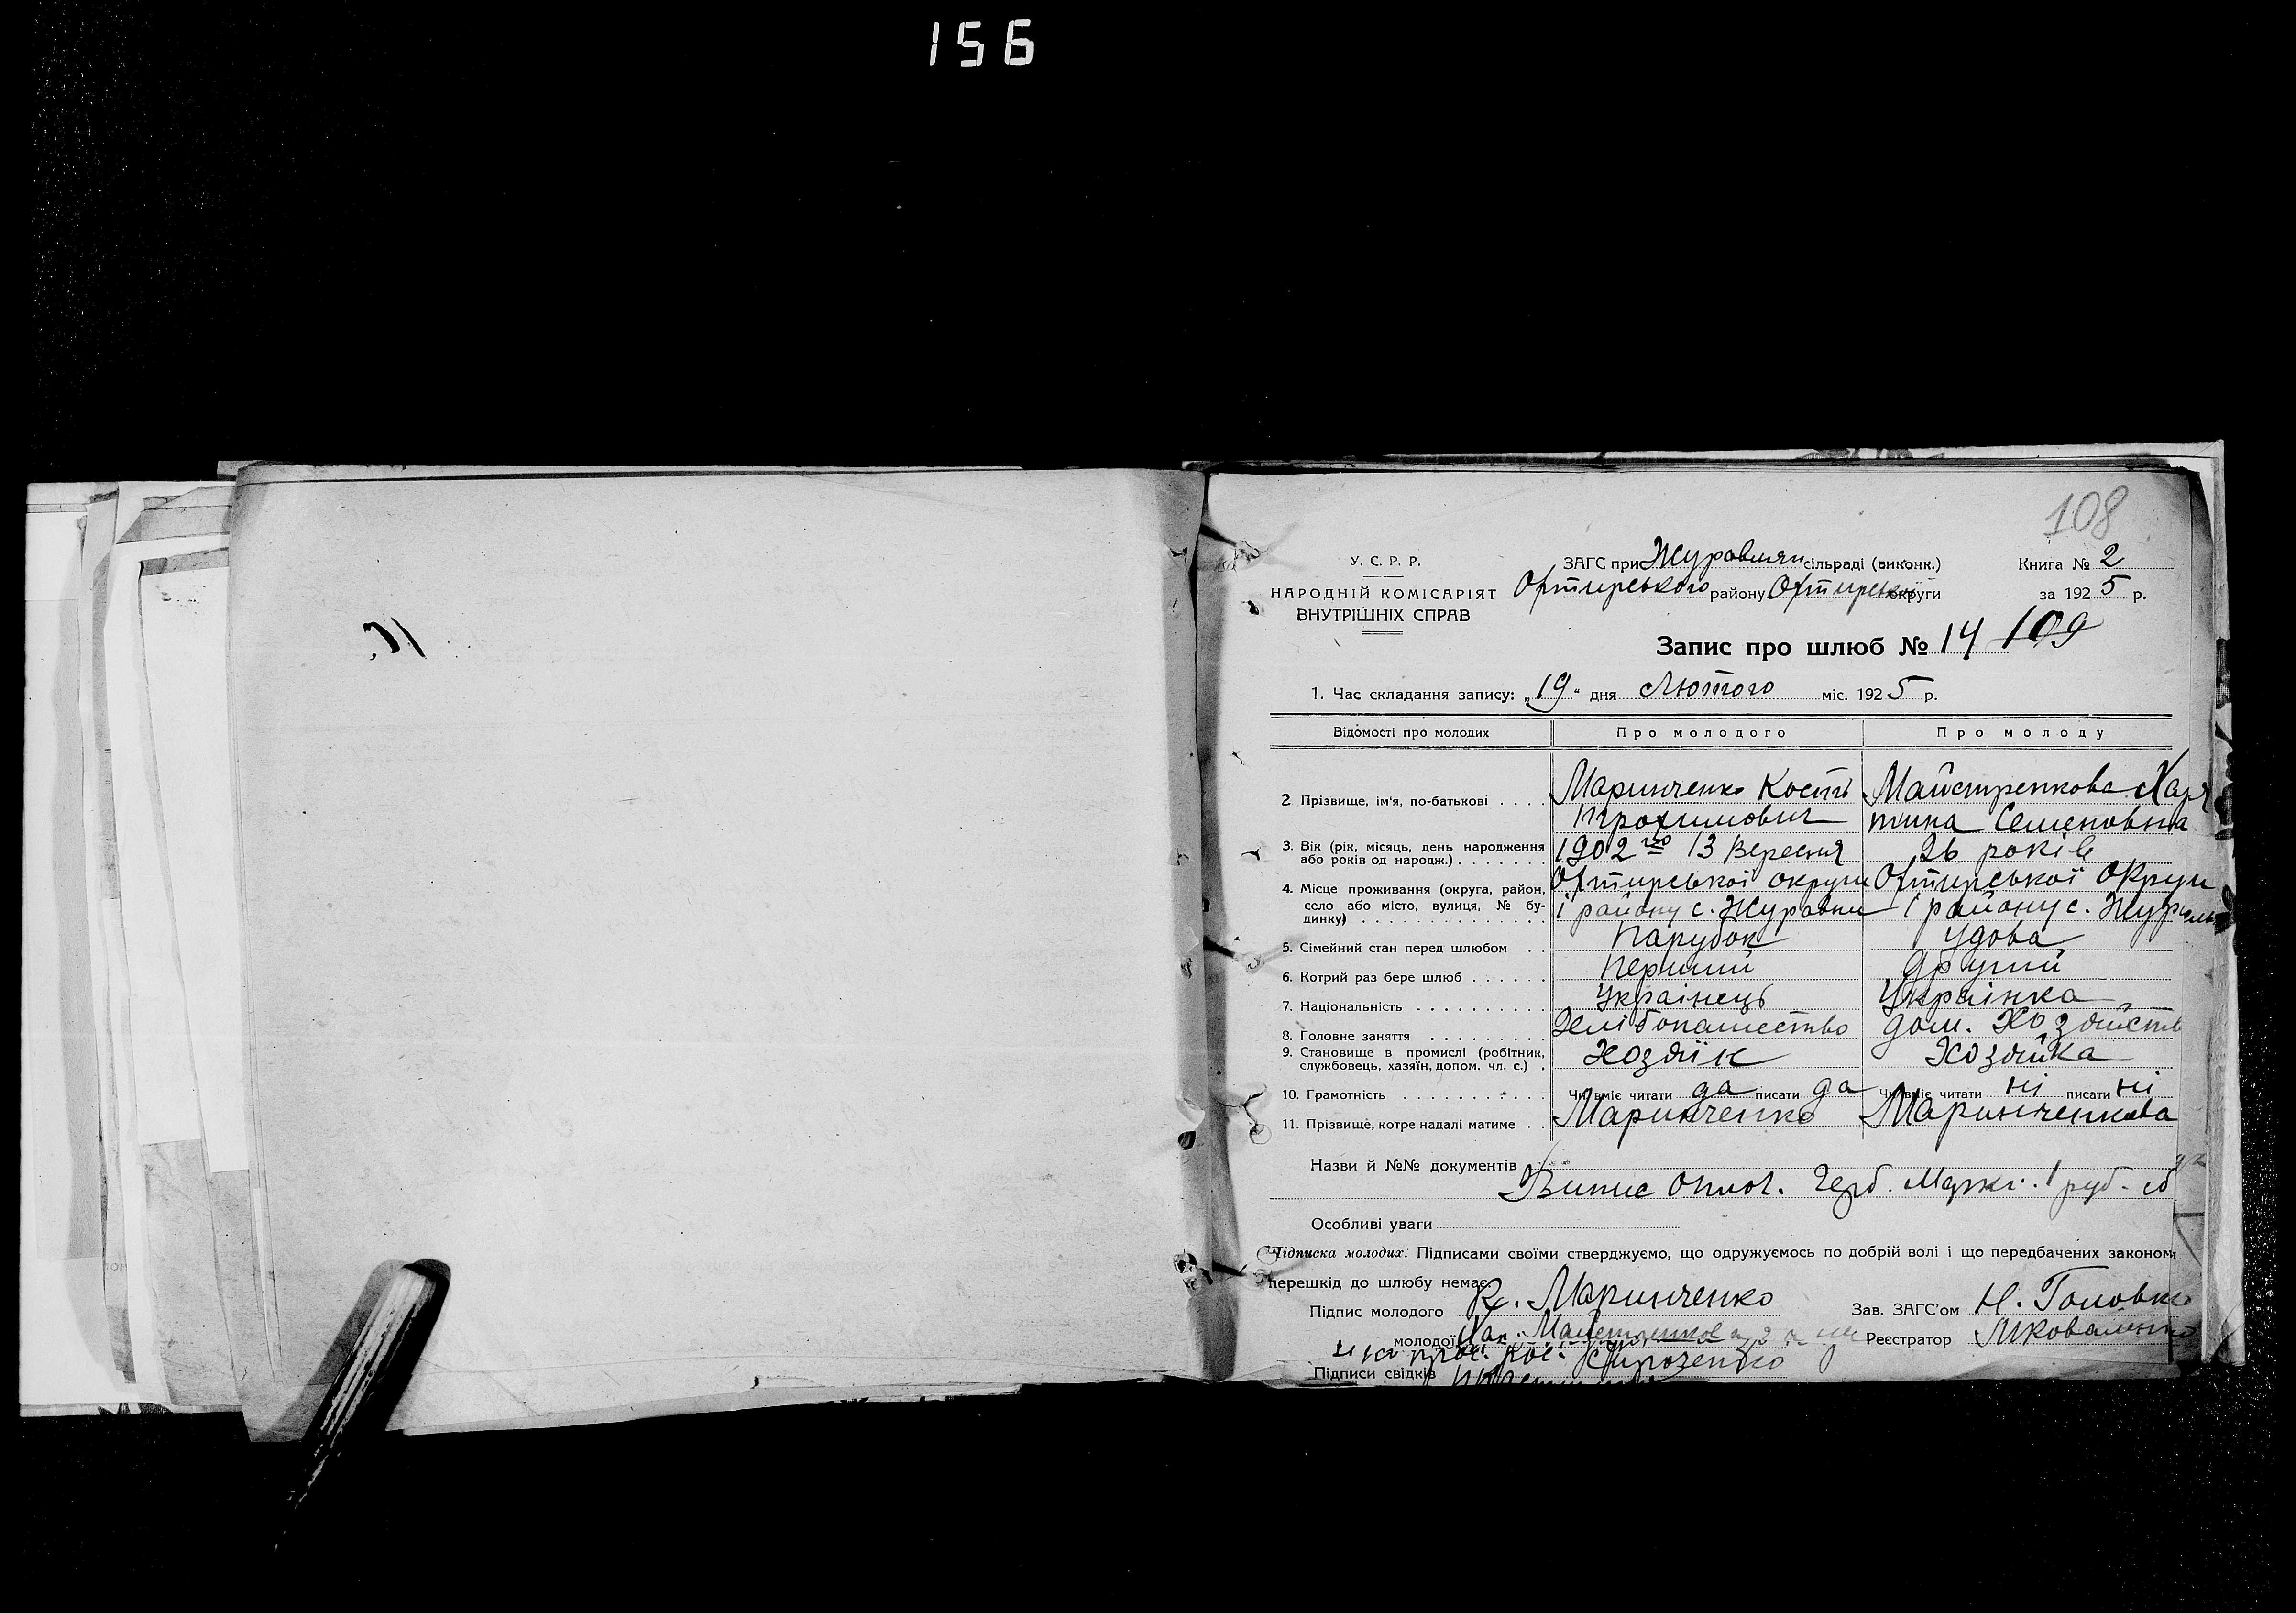 156
108
У. С. Р. Р.
НАРОДНІЙ КОМІСАРІЯТ
ВНУТРІШНІХ СПРАВ
ЗАГС при Журавлян сільраді (виконк.)
Охтирського району Охтирськ округи
Книга № 2
за 1925 р.
Запис про шлюб № 14 109
1. Час складання запису: „19“ дня Лютого міс. 1925 р.
Відомості про молодих Про молодого Про молоду
2. Прізвище, ім'я, по-батькові . . . . Маринченко Кость Майстренкова Хари
Трохимович тина Семеновна
3. Вік (рік, місяць, день народження або років од народж.) . . . . . . . 1902 го 13 Вересня 26 років
4. Місце проживання (округа, район, село або місто, вулиця, № будинку) . . . . . . . . . . . . . Охтирської округи Охтирської округи
1 району с. Журавни 1 району с.
5. Сімейний стан перед шлюбом . . Парубок Удова
6. Котрий раз бере шлюб . . . . . . Перший Другий
7. Національність . . . . . . . . . . Українець Українка
8. Головне заняття . . . . . . . . . Хлібопашество дом. Хозяйств
9. Становище в промислі (робітник, службовець, хазяїн, допом. чл. с.) . Хозяїк Хозяйка
10. Грамотність . . . . . . . . . . . Чи вміє читати да писати да Чи вміє читати ні писати ні
11. Прізвище, котре надалі матиме . . Маринченко Маринченкова
Назви й №№ документів
Випис оплоч. Герб. Марк. 1 руб.
Особливі уваги
Підписка молодих. Підписами своїми стверджуємо, що одружуємось по добрій волі і що передбачених законом
перешкід до шлюбу немає.
Підпис молодого К. Маринченко Зав. ЗАГС'ом Н. Головко
молодої Хар. Майстренкова Реєстратор
Підписи свідків